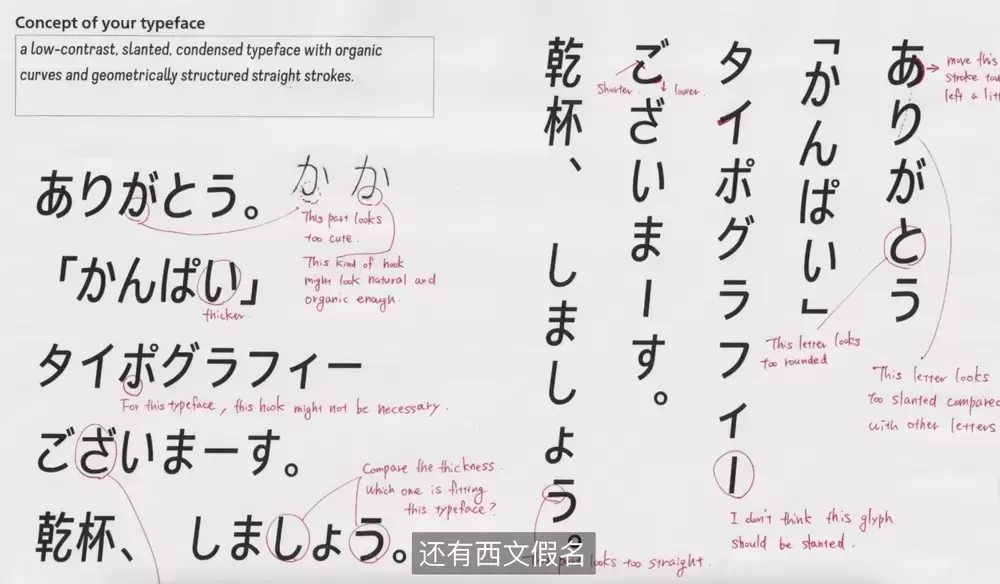 Concept of your typeface
a low-contrast, slanted, condensed typeface with organic
curves and geometrically structured straight strokes.
ありがとう。
か か
This part looks
too cute.
This kind of hook
might look natural and
organic enough.
「かんぱい」
thicker.
タイポグラフィー
For this typeface, this hook might not be necessary.
ございまーす。
Compare the thickness.
Which one is fitting
this typeface?
乾杯、 しましょう。
ありがとう
「かんぱい」
タイポグラフィー
ございまーす。
乾杯、 しましょう。
move this
stroke
left a
Shorter.
lower.
This letter looks
too rounded
This letter looks
too slanted compared
with other letters
I don't think this glyph
should be slanted.
looks too straight.
还有西文假名